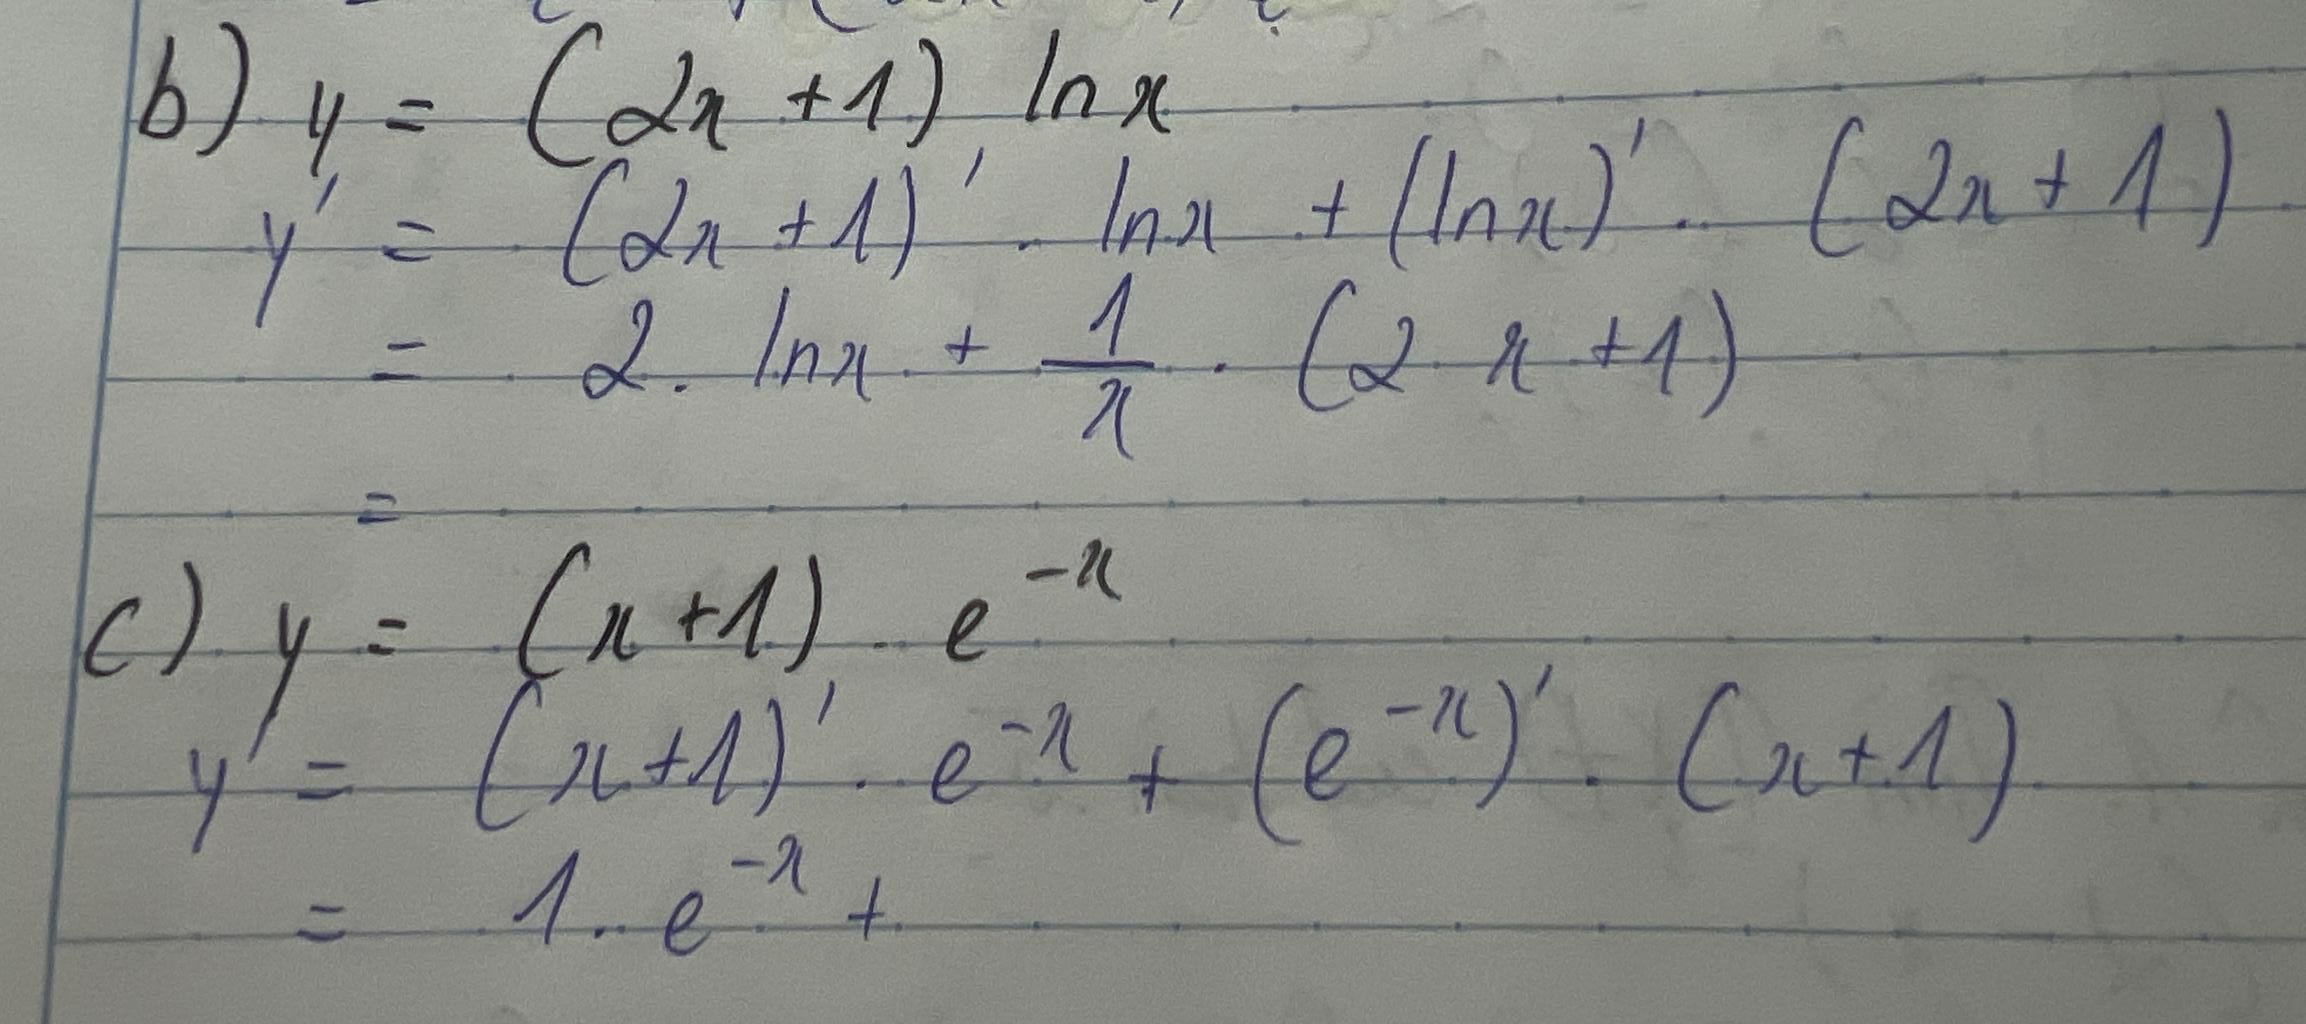 b) y = (2x + 1) ln x
y' = (2x + 1)' . ln x + (ln x)' . (2x + 1)
= 2 . ln x + 1/x . (2 x + 1)
=
c) y = (x + 1) . e^-x
y' = (x + 1)' . e^-x + (e^-x)' . (x + 1)
= 1 . e^-x +